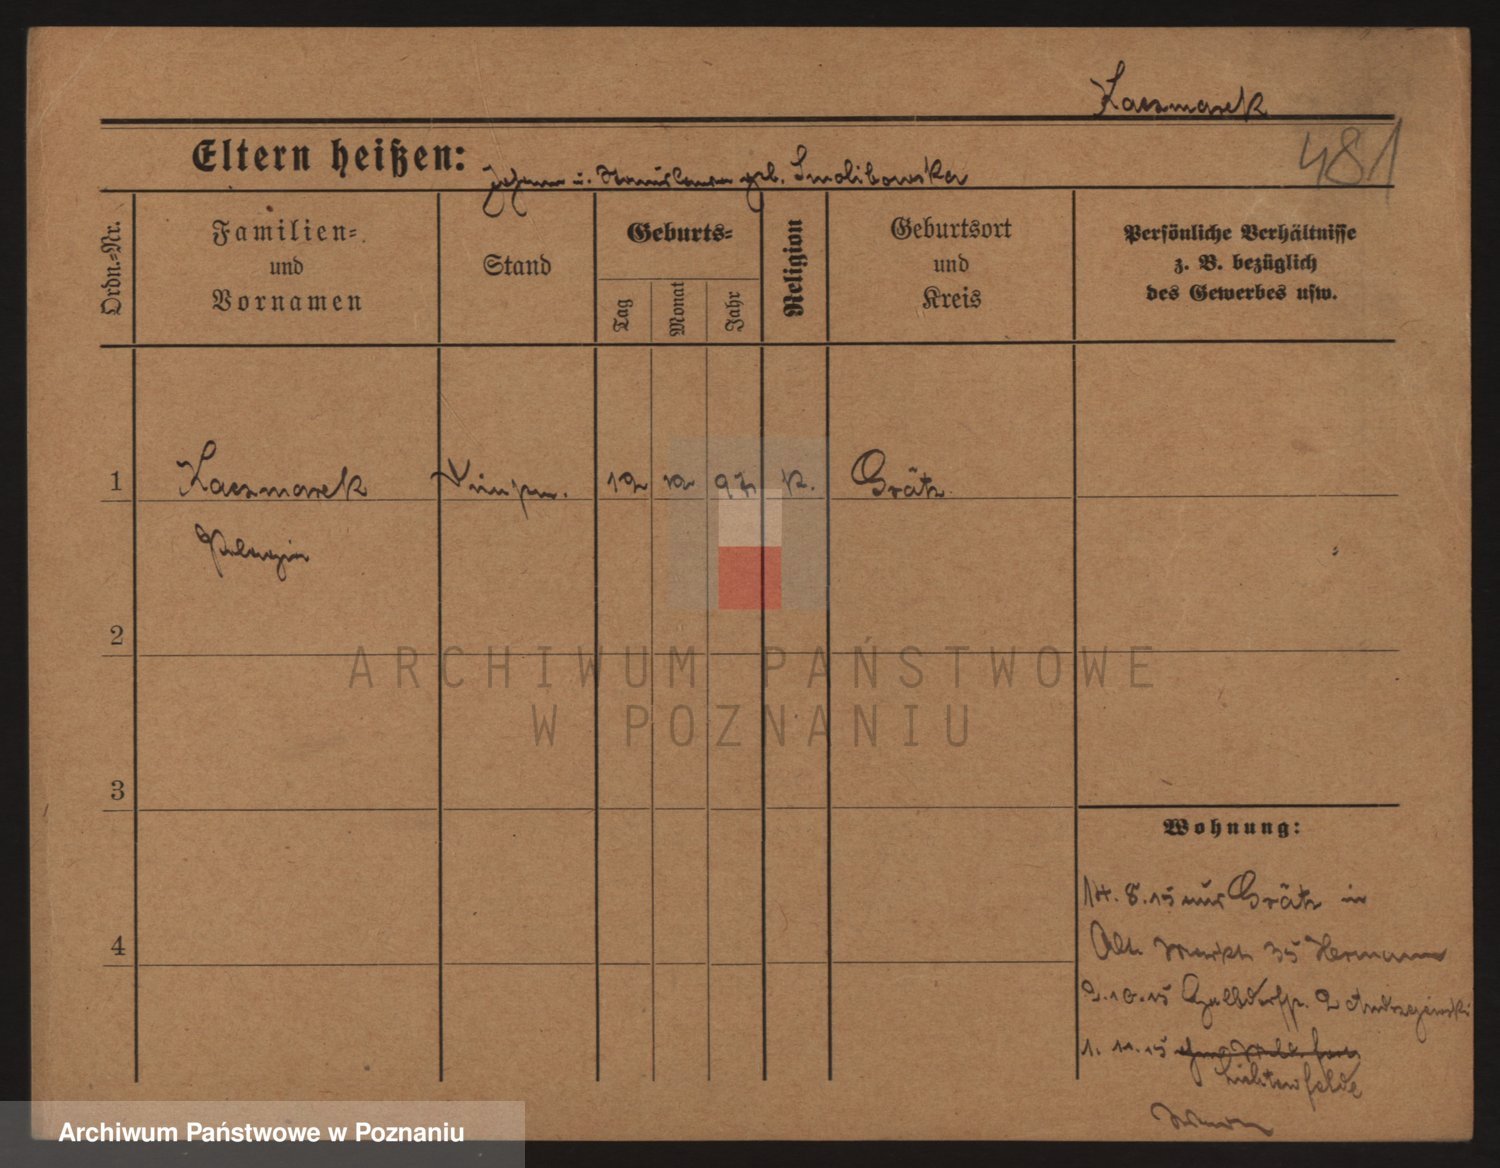 Kaczmarek
481
Eltern heißen: Johann u. Stanislawa geb. Smolibowska
Ordn.-Nr.
Familien-
und
Vornamen
Stand
Geburts-
Tag
Monat
Jahr
Religion
Geburtsort
und
Kreis
Persönliche Verhältnisse
z. B. bezüglich
des Gewerbes usw.
1 Kaczmarek 12 12 97 K. Grätz
Pelagia
2
ARCHIWUM PAŃSTWOWE
W POZNANIU
3
Wohnung:
14. 8. 15 aus Grätz in
4
Alt. Markt 35 Hermann
2. 10. 15 2 Andrzejewski
1. 11. 15
Lichtenfelde
Archiwum Państwowe w Poznaniu